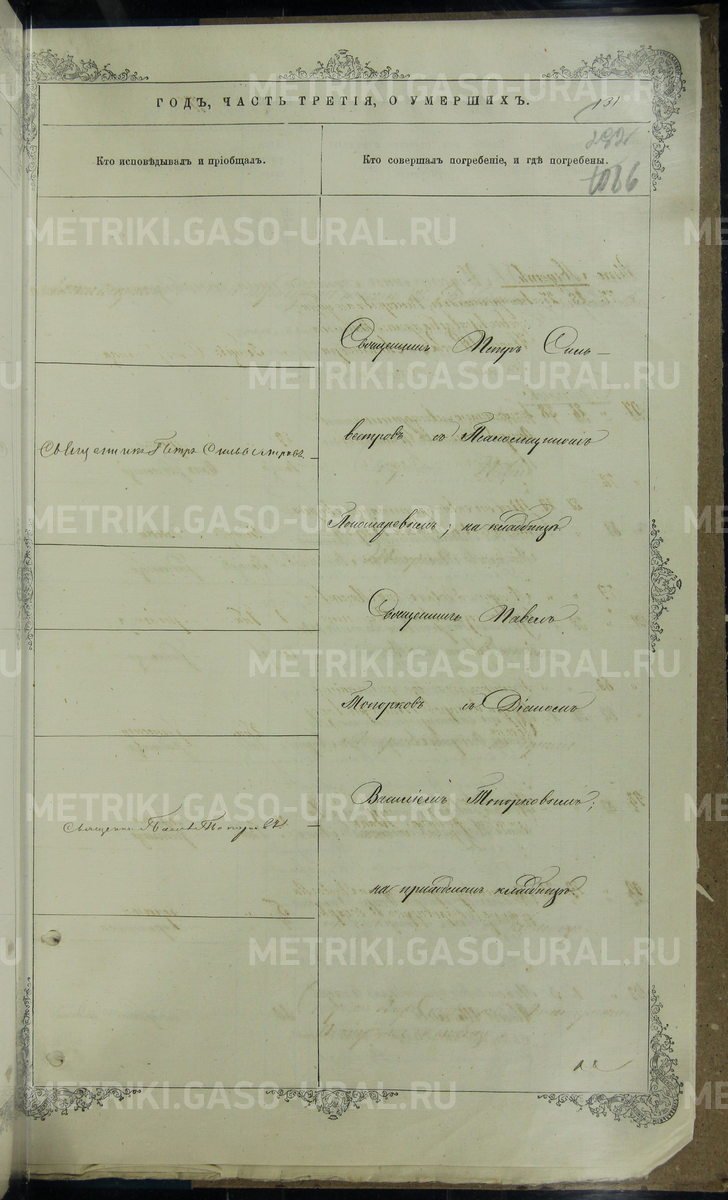 ГОДЪ, ЧАСТЬ ТРЕТІЯ, О УМЕРШИХЪ.
131
282
1086
Кто исповѣдывалъ и пріобщалъ.
Кто совершалъ погребеніе, и гдѣ погребены.
Священникъ Петръ Силь-
вестровъ съ Псаломщикомъ
Пономаревымъ; на кладбищѣ
Священникъ Павелъ
Топорковъ съ Діакономъ
Василіемъ Топорковымъ;
на приходскомъ кладбищѣ
Священникъ Петръ Сильвестровъ
Священник Павелъ Топорковъ
METRIKI.GASO-URAL.RU